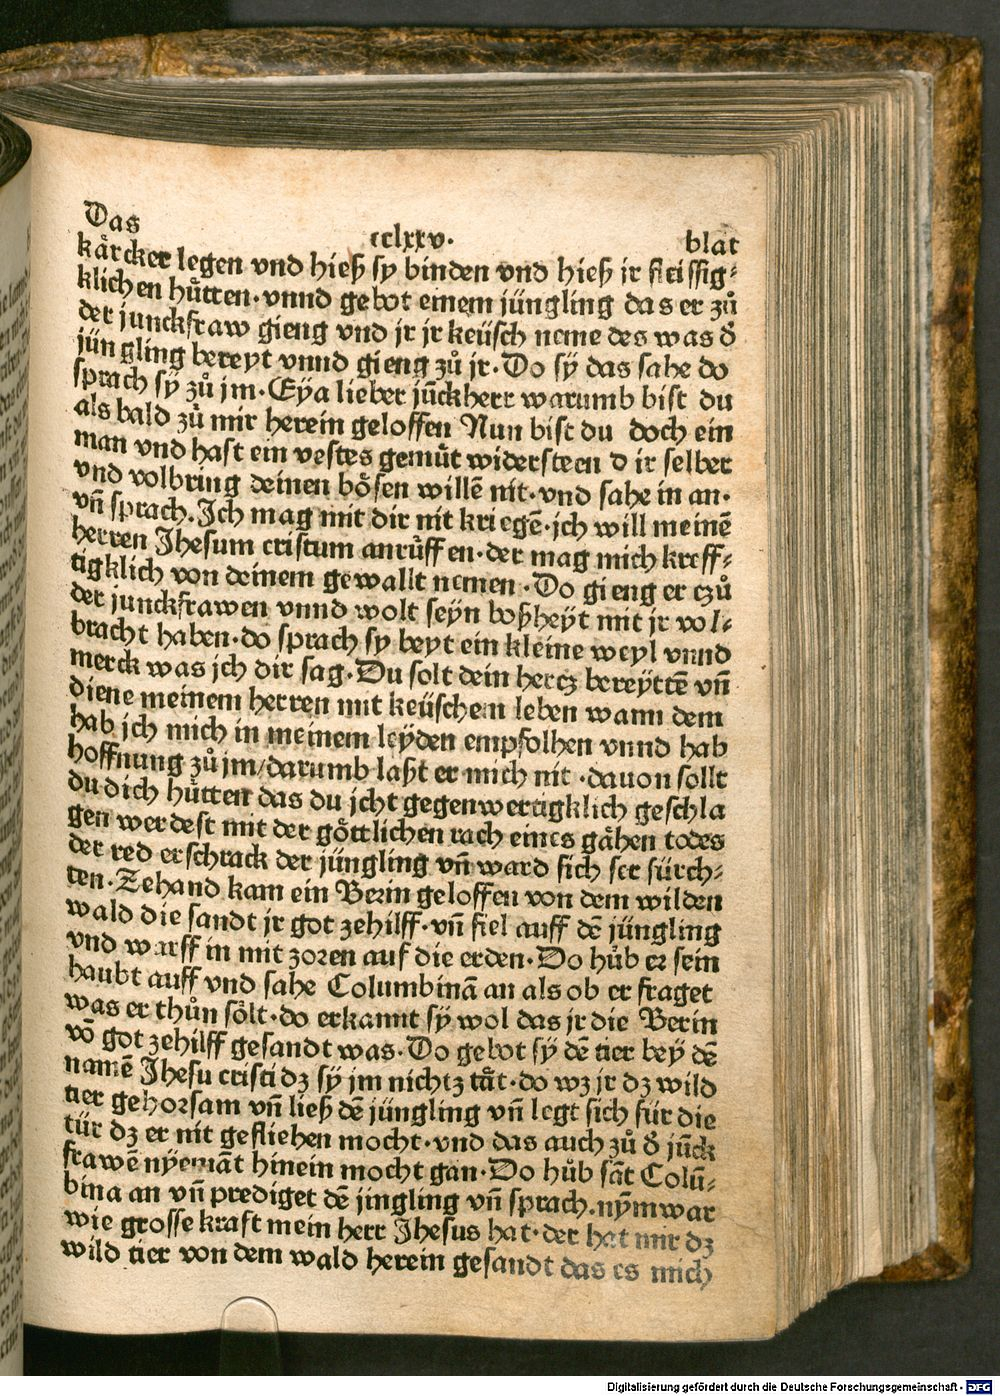 Das cclxxv. blat
kårcker legen vnd hieß sy binden vnd hieß jr fleissig⸗
klichen hůtten·vnnd gebot einem jüngling das er zů
der junckfraw gieng vnd jr jr keüsch neme des was d̕
jüngling bereyt vnnd gieng zů jr·Do sÿ das sahe do
sprach sÿ zů jm·Eya lieber jūckherr warumb bist du
als bald zů mir herein geloffen Nun bist du doch ein
man vnd hast ein vestes gemůt widersteen d ir selber
vnd volbring deinen bösen willē nit·vnd sahe in an·
vn̄ sprach.Ich mag mit dir nit kriegē·ich will meinē
herren Jhesum cristum anrůffen·der mag mich kreff⸗
tigklich von deinem gewallt nemen·Do gieng er czů
der junckfrawen vnnd wolt seÿn boßheÿt mit jr vol⸗
bracht haben·do sprach sy beyt ein kleine weyl vnnd
merck was jch dir sag·Du solt dein hercz bereÿttē vn̄
diene meinem herren mit keüschem leben wann dem
hab jch mich in meinem leÿden empfolhen vnnd hab
hoffnung zů jm/darumb laßt er mich nit·dauon sollt
du dich hůtten das du jcht gegenwertigklich geschla
gen werdest mit der göttlichen rach eines gåhen todes
der red erschrack der jüngling vn̄ ward sich ser fürch⸗
ten·Zehand kam ein Berin geloffen von dem wilden
wald die sandt jr got zehilff·vn̄ fiel auff dē jüngling
vnd warff in mit zoren auf die erden·Do hůb er sein
haubt auff vnd sahe Columbinā an als ob er fraget
was er thůn sölt·do erkannt sÿ wol das jr die Berin
vō got zehilff gesandt was·Do gebot sÿ dē tier beÿ dē
namē Jhesu cristi dz sÿ jm nichtz tåt·do wz jr dz wild
tier gehorsam vn̄ ließ dē jüngling vn̄ legt sich für die
tür dz er nit gefliehen mocht·vnd das auch zů d̕ jūck
frawē nyemāt hinein mocht gan·Do hůb sāt Colū⸗
bina an vn̄ prediget dē jingling vn̄ sprach.nÿm war
wie grosse kraft mein herr Jhesus hat·der hat mir dz
wild tier von dem wald herein gesandt das es mich
Digitalisierung gefördert durch die Deutsche Forschungsgemeinschaft - DFG